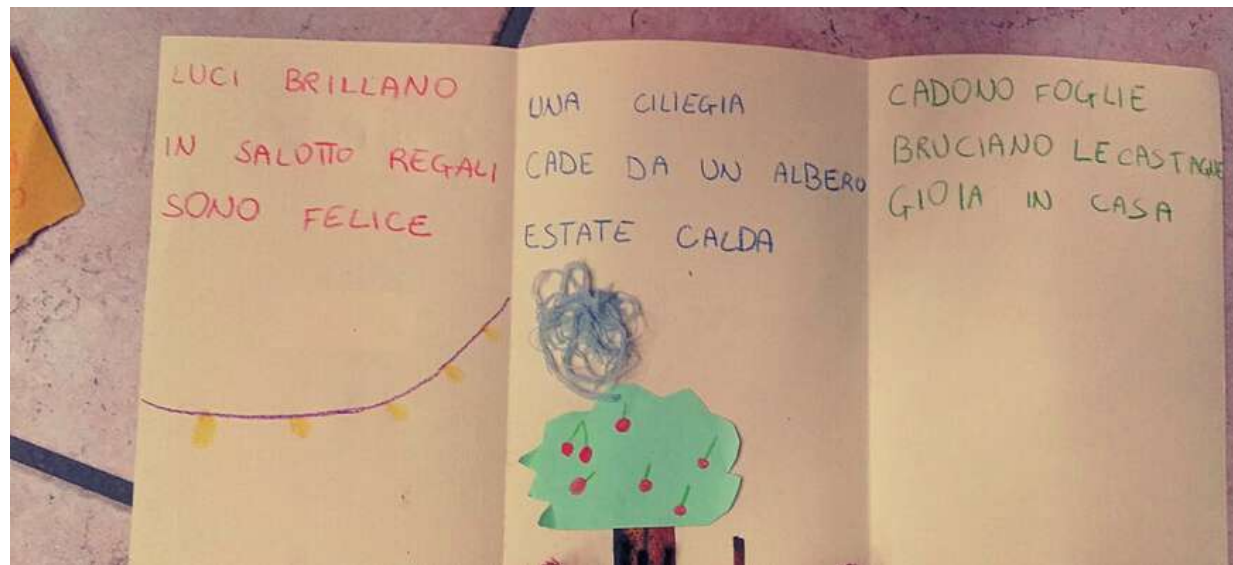 LUCI BRILLANO
IN SALOTTO REGALI
SONO FELICE
UNA CILIEGIA
CADE DA UN ALBERO
ESTATE CALDA
CADONO FOGLIE
BRUCIANO LE CASTAGNE
GIOIA IN CASA